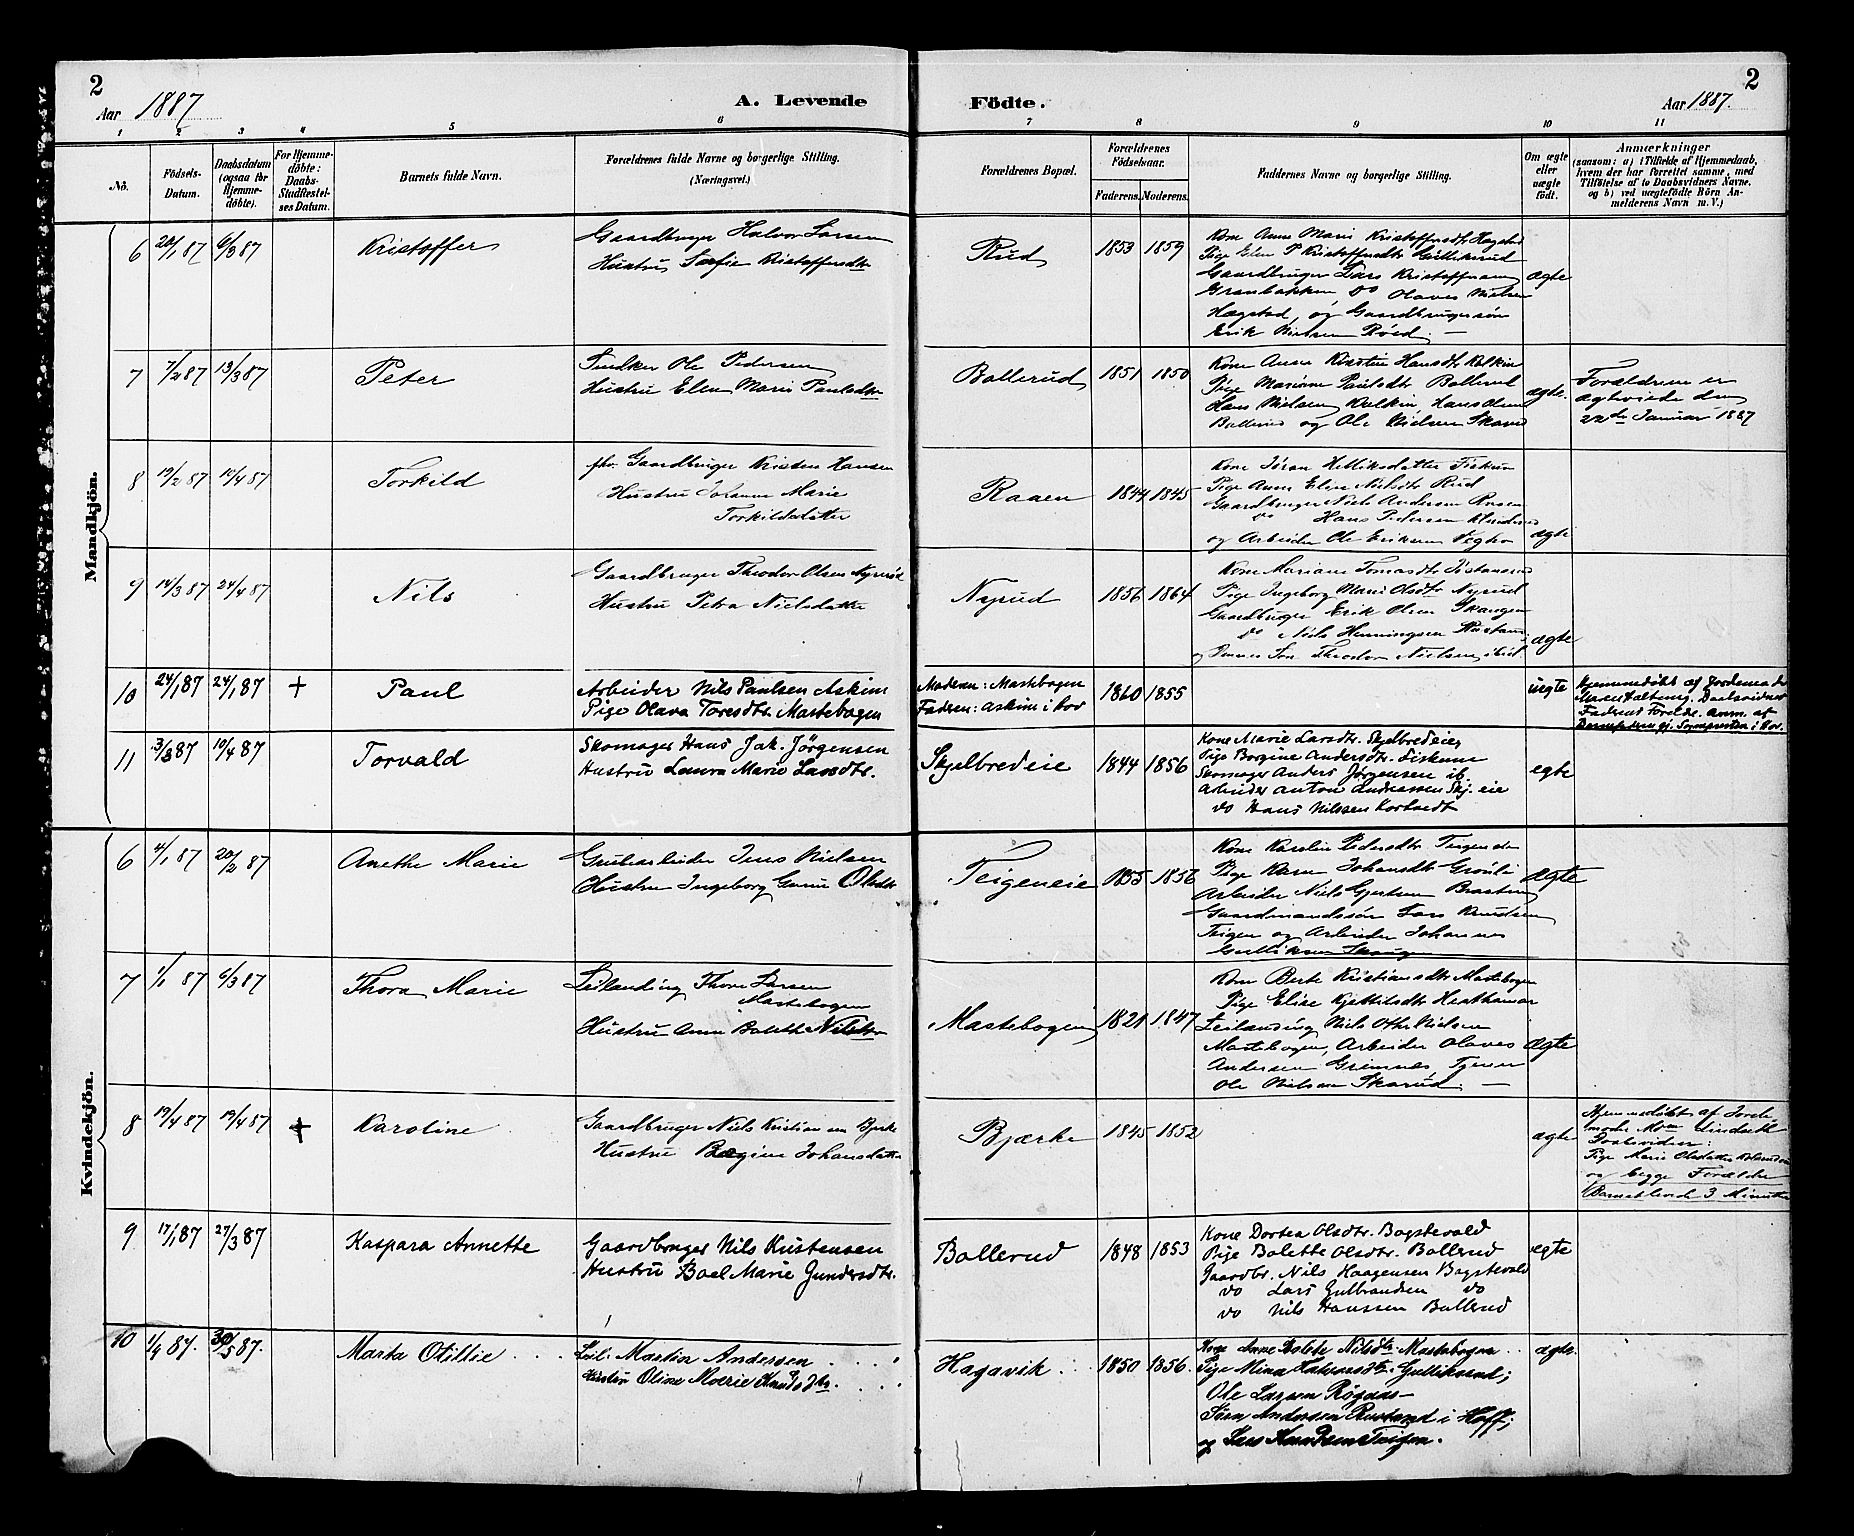 2
Aar 1887
A. Levende
Födte.
Aar 1887.
2
1 2 3 4 5 6 7 8 9 10 11
No.
Födsels-Datum.
Daabsdatum (ogsaa for Hjemmedöbte).
For Hjemmedöbte: Daabs-Stadfæstelses Datum.
Barnets fulde Navn.
Forældrenes fulde Navne og borgerlige Stilling.
(Næringsvei.)
Forældrenes Bopæl.
Forældrenes Födselsaar.
Faderens. Moderens.
Faddernes Navne og borgerlige Stilling.
Om ægte eller uægte födt.
Anmærkninger
(saasom: a) i Tilfælde af Hjemmedaab,
hvem der har forrettet samme, med
Tilföielse af to Daabsvidners Navne,
og b) ved uægtefödte Börn An-
melderens Navn m. V.)
Mandkjön.
6 20/1 87 6/3 87 Kristoffer
Gaardbruger Halvor Larsen
Hustru Sofie Kristoffersdtr
Rud 1853 1859
Kone Anne Marie Kristoffersdtr Hagstad
Pige Elen P Kristoffersdtr Gullikrud
Gaardbruger Lars Kristoffersen
Granbakken do Olaves Nielsen
Hægstad, og Gaardbrugersön
Erik Nielsen Röed. —
ægte
7 7/2 87 13/3 87 Peter
Snedker Ole Pedersen
Hustru Elen Marie Paulsdtr
Bollerud 1851 1850
Kone Anne Kirstin Hansdtr
Pige Mariane Paulsdtr Bollerud
Hans Nielsen Hans Olsen
Bollerud og Ole Nielsen
ægte.
Forældrene er
ægteviede den
22de Januar 1887
8 19/2 87 10/4 87 Torkild
fhv. Gaardbruger Kristen Hansen
Hustru Johanne Marie
Torkildsdatter
Raaen 1844 1845
Kone Jöran Helliksdatter Fiskum
Pige Anne Elise Nielsdtr Rud
Gaardbruger Niels Andersen
do Hans Pedersen
og Arbeider Ole Eriksen
ægte
9 14/3 87 24/4 87 Nils
Gaardbruger Theodor Olsen Nyrud
Hustru Petra Nielsdatter
Nyrud 1856 1864
Kone Mariane Tomasdtr
Pige Ingeborg Marie Olsdtr Nyrud
Gaardbruger Erik Olsen Skaugen
do Niels Henningsen
og Sön Theodor Nielsen ibid
ægte
10 24/1 87 24/1 87 + Paul
Arbeider Nils Paulsen Askim
Pige Olava Toresdtr. Mastebogen
Moderen: Mastebogen
Faderen: Askim i Hov
1860 1855
uegte
Hjemmedöbt af Jordemoder
Daabsvidner
Fadrene Foreldr. Anm. af
11 3/3 87 10/4 87 Torvald
Skomager Hans Jak. Jörgensen
Hustru Laura Marie Larsdtr.
Skjelbredeie 1844 1856
Kone Marie Larsdtr. Skjelbredeie
Pige Borgine Andersdtr. Fiskum
Skomager Anders Jörgensen ib.
Arbeider Anton Andreassen Skj.eie
do Hans Nilssen
egte
Kvindekjön.
6 4/1 87 20/2 87 Anethe Marie
Grubarbeider Jens Nielsen
Hustru Ingeborg Gurine Olsdtr
Teigeneie 1855 1856
Kone Karolin Pedersdtr Teigen
Pige Karen Johansdtr Gröslie
Arbeider Niels Gjertsen
Gaardmandssön Lars Knudsen
Teigen og Arbeider Johannes
Gulliksen Skaugen
ægte
7 1/1 87 6/3 87 Thora Marie
Leilænding Thore Larsen
Mastebogen
Hustru Anne Boleth Nilsdtr
Mastebogen 1821 1847
Kone Berte Kristiansdtr Mastebogen
Pige Elise Kjettilsdtr
Leilænding Niels Othr Nielsen
Mastebogen, Arbeider Olaves
Andersen Grimnes, Tjener
Ole Nielsen Skarud. —
ægte
8 19/4 87 19/4 87 + Karoline
Gaardbruger Niels Kristiansen Bjerke
Hustru Johansdatter
Bjærke 1845 1852
ægte
Hjemmedöbt af Jorde-
moder
Daabsvidner:
Pige Marie Olsdatter
og begge Forældre
Barnet levede 3 Minutter
9 17/1 87 27/3 87 Kaspara Annette
Gaardbruger Nils Kristensen
Hustru Boel Marie Gundersdtr.
Bollerud 1848 1853
Kone Dortea Olsdtr. Bagstevold
Pige Bolette Olsdtr. Bollerud
Gaardbr. Nils Haagensen Bagstevold
do Lars Gulbrandsen do
do Nils Hanssen Bollerud
egte
10 1/4 87. 30/5 87. Marta Otillie
Leil. Martin Andersen
Hustru Oline Marie Knudsdtr.
Hagavik 1850 1856.
Kone Anne Bolete Nilsdtr. Mastebogen
Pige Mina Halvorsdtr. Gulliksrud;
Ole Larsen Rögaas—
Sörn Andersen Rustand i Hoff;
og Lars Knudsen Teigen.
ægte.